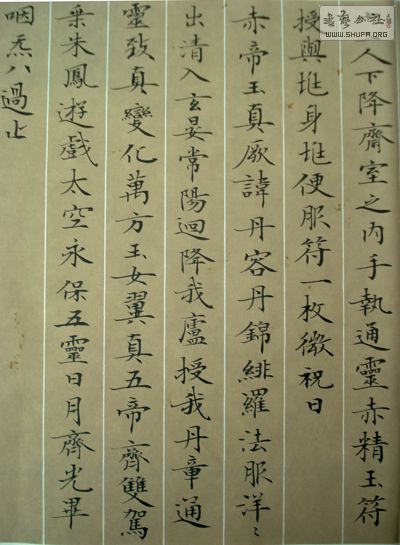 人下降齋室之内手執通靈赤精玉符
授與兆身兆便服符一枚微祝曰
赤帝玉真厥諱丹容丹錦緋羅法服洋〻
出清入玄晏常陽迴降我廬授我丹章通
靈致真變化萬方玉女翼真五帝齊雙駕
乗朱鳳遊戲太空永保五靈日月齊光畢
咽炁八過止
WWW.SHUFA.ORG